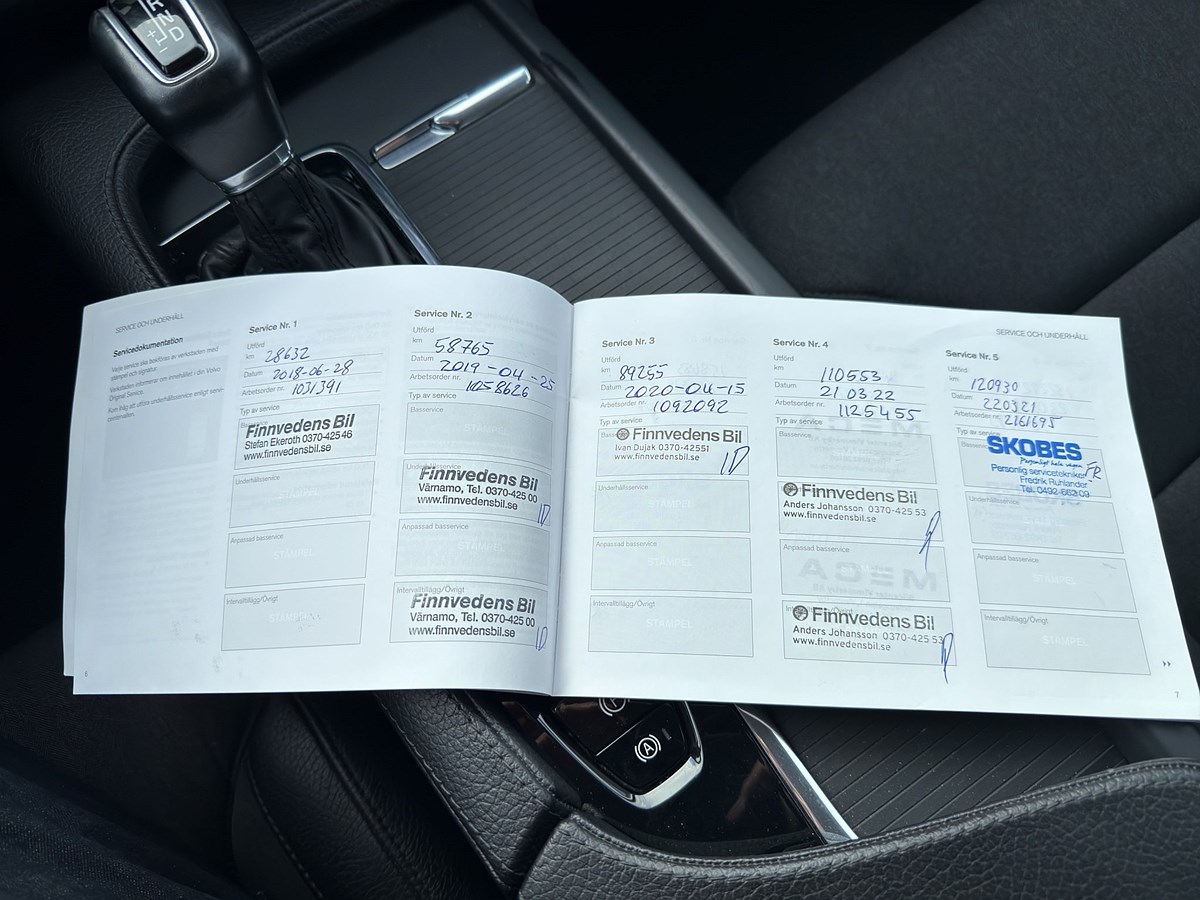 R
N
D
+
−
SERVICE OCH UNDERHÅLL
Servicedokumentation
Varje service ska bokföras av verkstaden med
stämpel och signatur.
Verkstaden informerar om innehållet i din Volvo
Original Service.
Kom ihåg att utföra underhållsservice enligt service-
Service Nr. 1
Utförd
km 28632
Datum 2018-06-28
Arbetsorder nr. 1031391
Typ av service
Finnvedens Bil
Stefan Ekeroth 0370-425 46
www.finnvedensbil.se
Underhållsservice
STÄMPEL
Anpassad basservice
STÄMPEL
Intervalltillägg/Övrigt
STÄMPEL
Service Nr. 2
Utförd
km 58765
Datum 2019-04-25
Arbetsorder nr. 1058626
Typ av service
Basservice
STÄMPEL
Finnvedens Bil
Värnamo, Tel. 0370-425 00
www.finnvedensbil.se
ID
Anpassad basservice
STÄMPEL
Intervalltillägg/Övrigt
Finnvedens Bil
Värnamo, Tel. 0370-425 00
www.finnvedensbil.se
ID
6
Service Nr. 3
Utförd
km 89255
Datum 2020-04-15
Arbetsorder nr. 1092092
Typ av service
Finnvedens Bil
Ivan Dujak 0370-42551
www.finnvedensbil.se
ID
Underhållsservice
STÄMPEL
Anpassad basservice
STÄMPEL
Intervalltillägg/Övrigt
STÄMPEL
Service Nr. 4
Utförd
km 110553
Datum 21 03 22
Arbetsorder nr. 1125455
Typ av service
Basservice
Finnvedens Bil
Anders Johansson 0370-425 53
www.finnvedensbil.se
Anpassad basservice
Finnvedens Bil
Anders Johansson 0370-425 53
www.finnvedensbil.se
SERVICE OCH UNDERHÅLL
Service Nr. 5
Utförd
km 120930
Datum 220321
Arbetsorder nr. 2161695
Typ av service
SKOBES
Personligt hela vägen
Personlig servicetekniker
Fredrik Ruhlander
Tel. 0492-662 09
FR
Underhållsservice
Anpassad basservice
STÄMPEL
Intervalltillägg/Övrigt
STÄMPEL
7
(A)